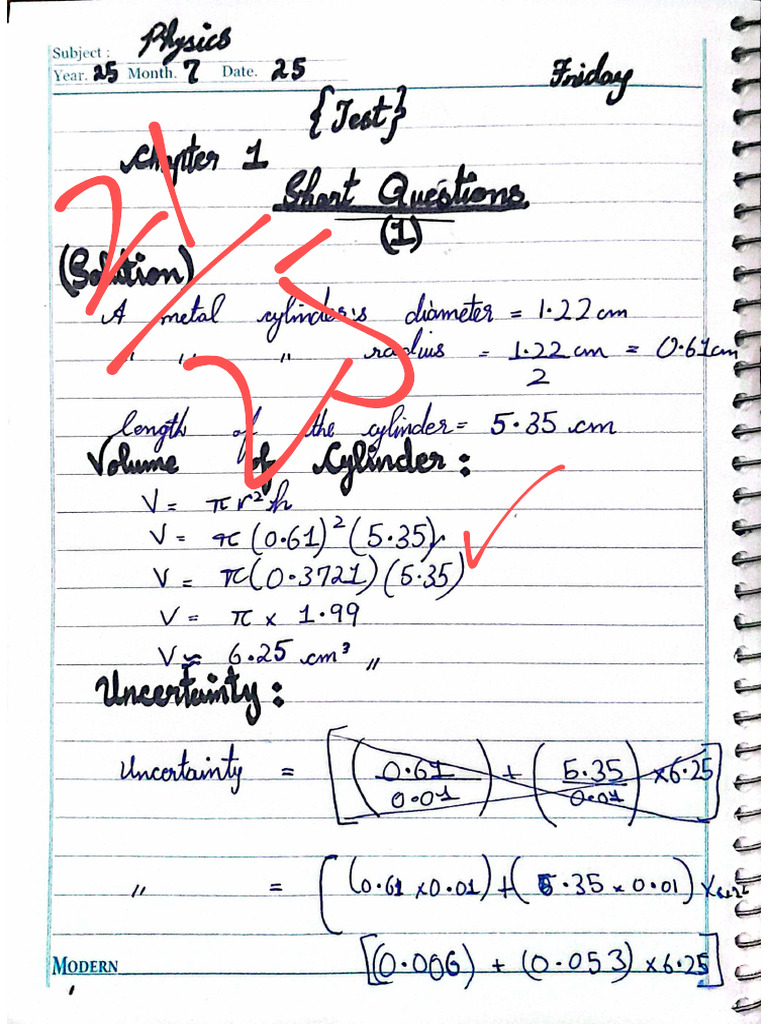 Subject: Physics
Year. 25 Month. 7 Date. 25
Friday
{Test}
Chapter 1
Short Questions
(1)
(Solution)
21/25
A metal cylinder's diameter = 1.22 cm
" " " radius = 1.22 cm / 2 = 0.61 cm
length of the cylinder = 5.35 cm
Volume of Cylinder:
V = πr²h
V = π(0.61)²(5.35)
V = π(0.3721)(5.35)
V = π × 1.99
V ≈ 6.25 cm³ "
Uncertainty:
Uncertainty = [(0.61/0.01) + (5.35/0.01) × 6.25]
" = [(0.61 × 0.01) + (5.35 × 0.01) ×
[(0.006) + (0.053) × 6.25]
MODERN